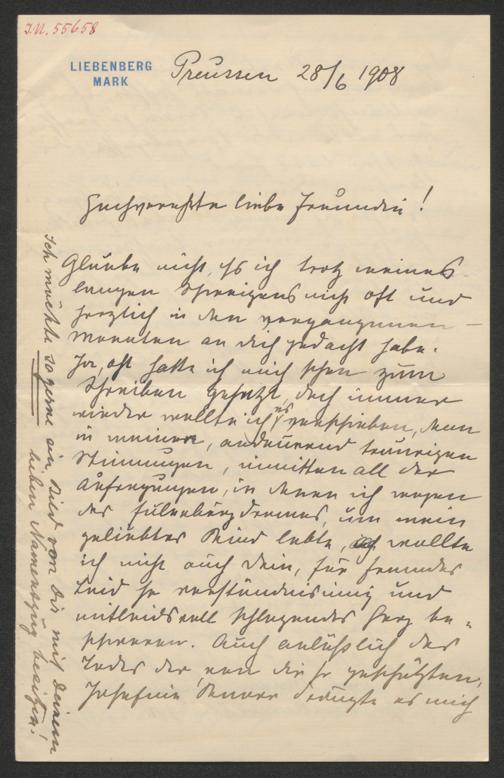 I.N. 55658
LIEBENBERG
MARK
Preussen 28/6 1908
Hochverehrte liebe Freundin!
Glaube nicht, daß ich trotz meines
langen Schweigens nicht oft und
herzlich in den vergangenen
Monaten an dich gedacht habe.
Ja, oft hatte ich mich schon zum
Schreiben gesetzt, doch immer
wieder wollte ich es verschieben, denn
in meiner, andauernd traurigen
Stimmungen, inmitten all der
Aufregungen, in denen ich wegen
des Eulenburgdramas, um mein
geliebtes Kind lebte, wollte
ich nicht auch Dein, für fremdes
Leid so verständnisinnig und
mitleidsvoll schlagendes Herz be-
schweren. Auch anläßlich des
Todes der von dir so geschätzten,
Josefine drängte es mich
Ich möchte so gerne ein Bild von Dir mit Deinem
lieben Namenszug besitzen!